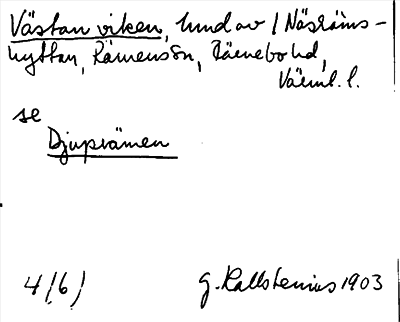 Västanviken, hmd av / Näsräms-
hyttan, Rämensön, Rämebohd,
Värml. l.
se
Djuprämen
4/6/
G. Kallstenius 1903